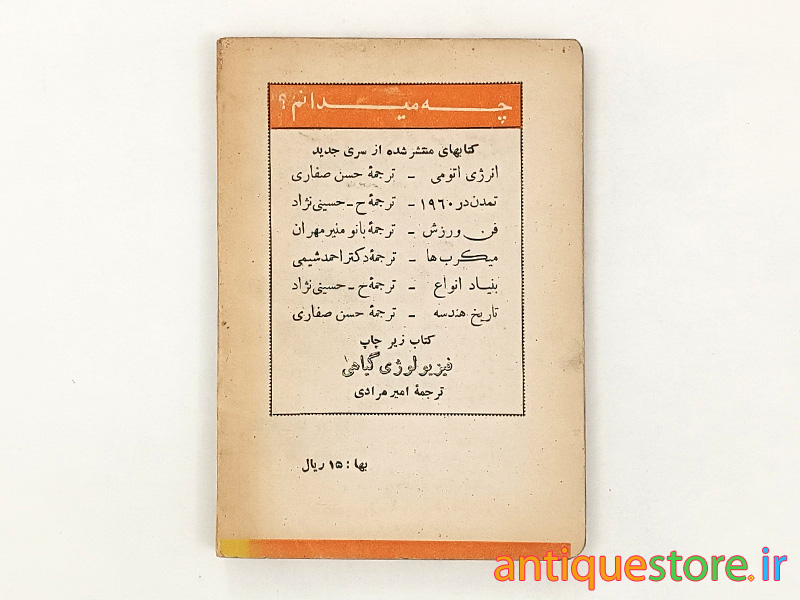 چه میدانم؟
کتابهای منتشر شده از سری جدید
انرژی اتومی - ترجمهٔ حسن صفاری
تمدن در ۱۹۶۰ - ترجمهٔ ح - حسینی‌نژاد
فن ورزش - ترجمهٔ بانو منیر مهران
میکرب‌ها - ترجمهٔ دکتر احمد شیمی
بنیاد انواع - ترجمهٔ ح - حسینی‌نژاد
تاریخ هندسه - ترجمهٔ حسن صفاری
کتاب زیر چاپ
فیزیولوژی گیاهی
ترجمهٔ امیر مرادی
بها : ۱۵ ریال
antiquestore.ir